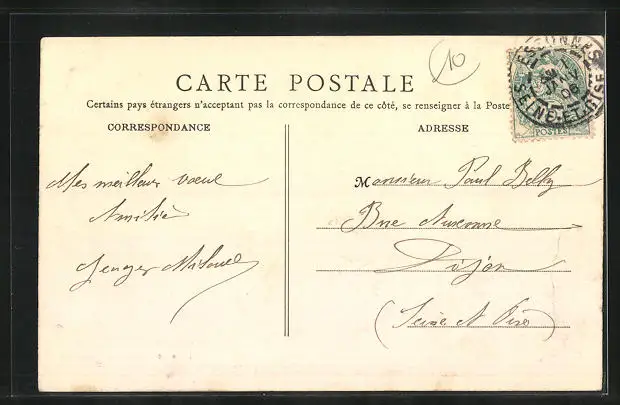 10
CARTE POSTALE
Certains pays étrangers n'acceptant pas la correspondance de ce côté, se renseigner à la Poste
CORRESPONDANCE
ADRESSE
ESSONNES
SEINE-ET-OISE
POSTES
Mes meilleurs vœux
Amitiés
Monsieur Paul
Rue Auxonne
Dijon
(Seine et Oise)